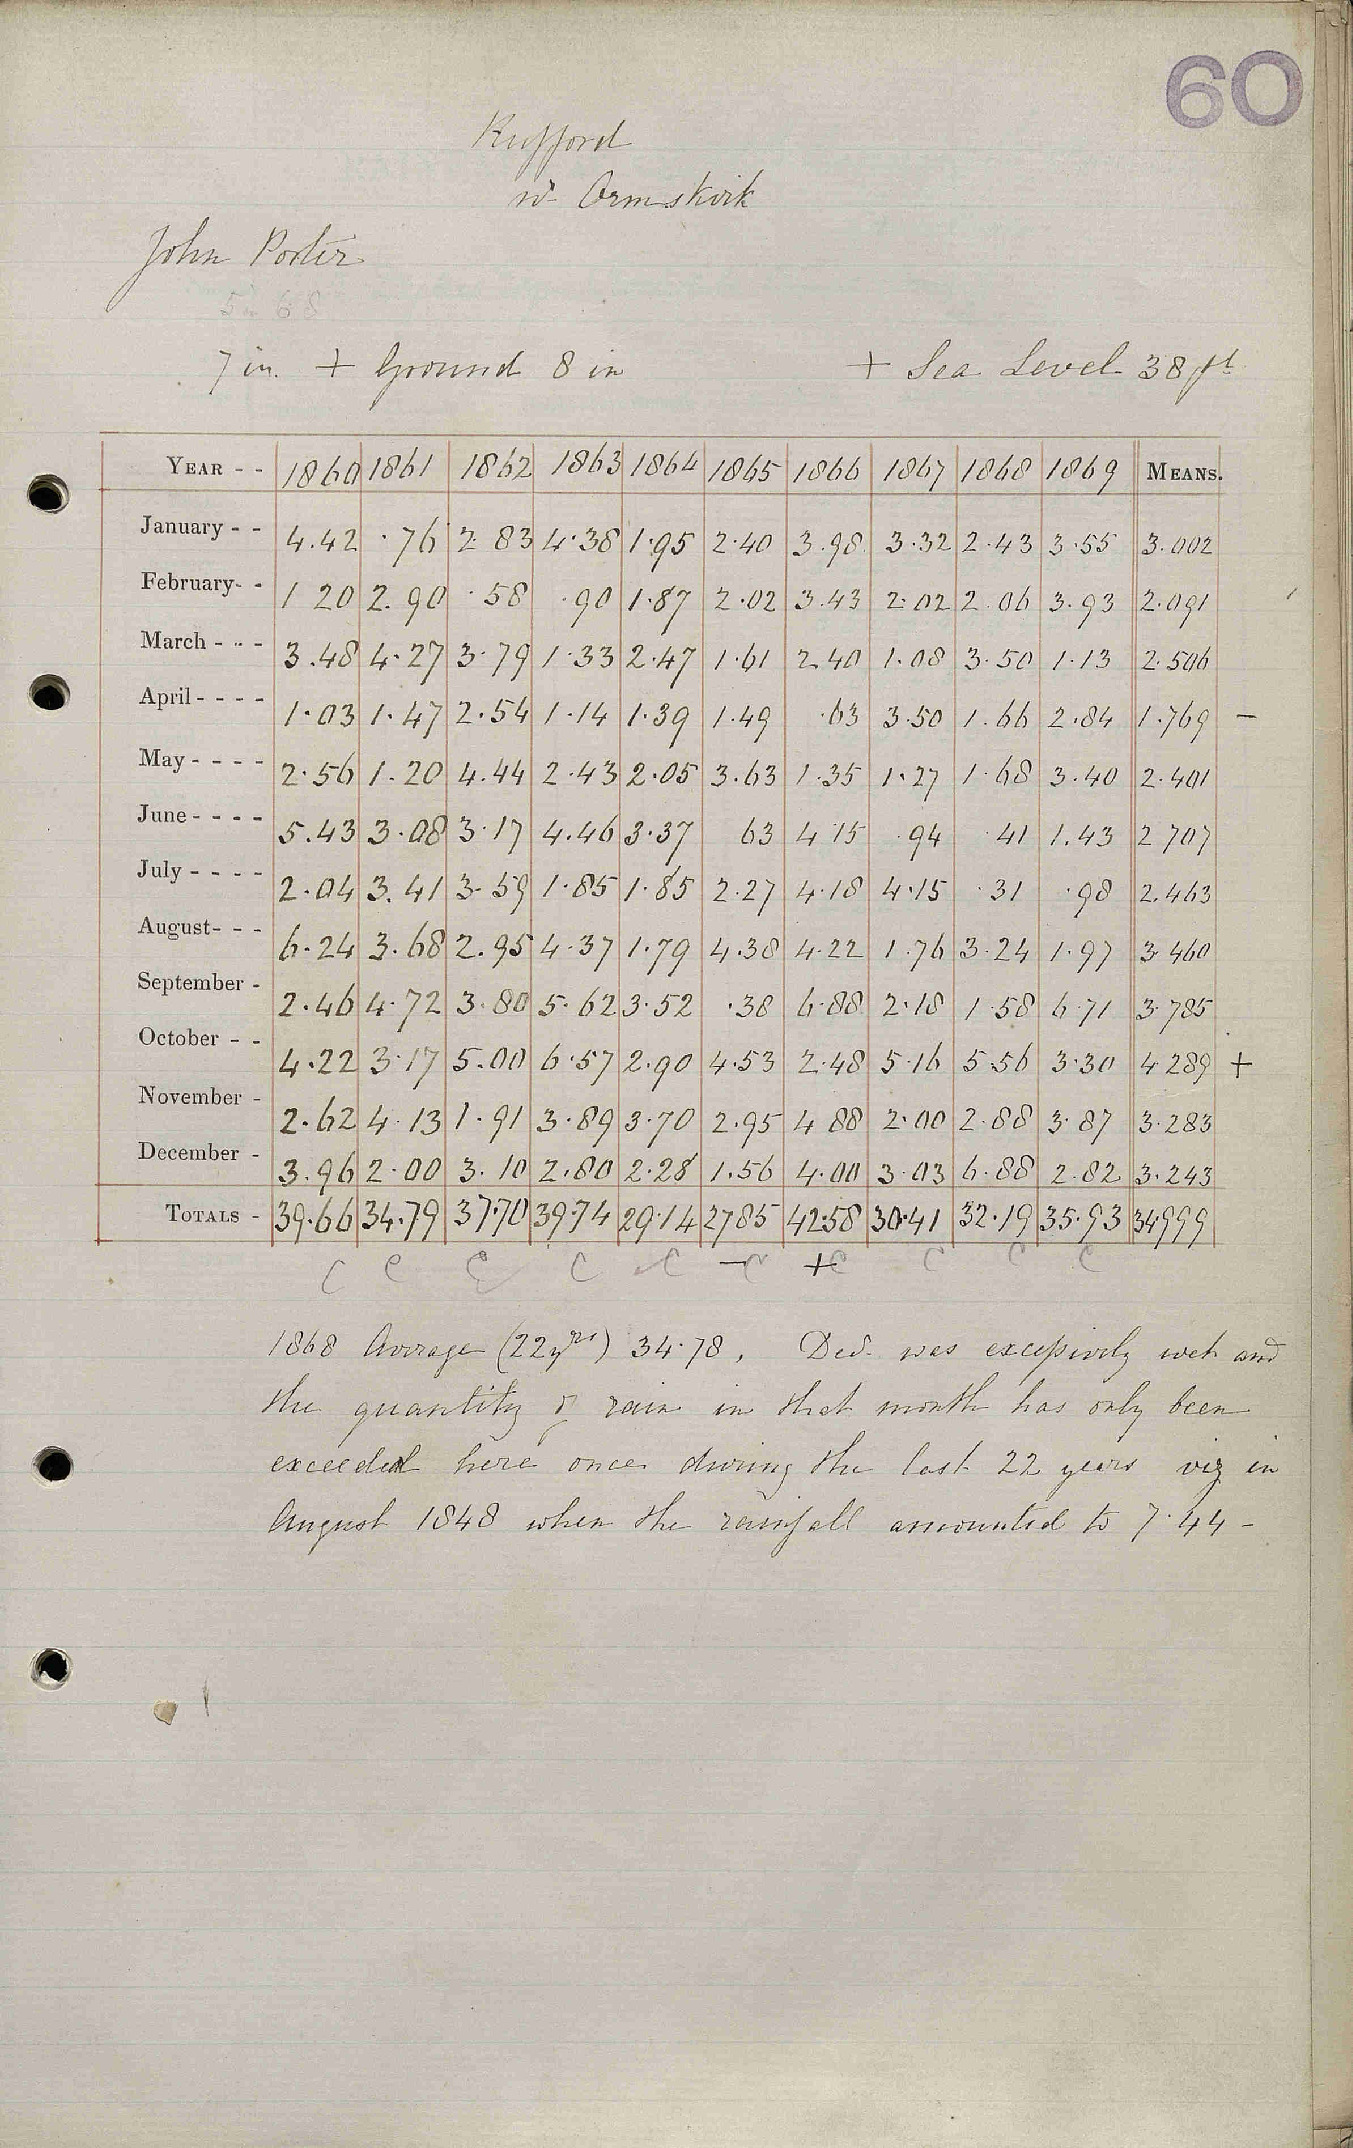 60
Rufford
nr Ormskirk
John Porter
5in 68
7 in. + Ground 8 in + Sea Level 38 ft
YEAR - - 1860 1861 1862 1863 1864 1865 1866 1867 1868 1869 MEANS.
January - - 4.42 .76 2.83 4.38 1.95 2.40 3.98 3.32 2.43 3.55 3.002
February- - 1.20 2.90 .58 .90 1.87 2.02 3.43 2.02 2.06 3.93 2.091
March - - - 3.48 4.27 3.79 1.33 2.47 1.61 2.40 1.08 3.50 1.13 2.506
April - - - - 1.03 1.47 2.54 1.14 1.39 1.49 .63 3.50 1.66 2.84 1.769 -
May - - - - 2.56 1.20 4.44 2.43 2.05 3.63 1.35 1.27 1.68 3.40 2.401
June - - - - 5.43 3.08 3.17 4.46 3.37 63 4.15 .94 .41 1.43 2.707
July - - - - 2.04 3.41 3.59 1.85 1.85 2.27 4.18 4.15 .31 .98 2.463
August- - - 6.24 3.68 2.95 4.37 1.79 4.38 4.22 1.76 3.24 1.97 3.460
September - 2.46 4.72 3.80 5.62 3.52 .38 6.88 2.18 1.58 6.71 3.785
October - - 4.22 3.17 5.00 6.57 2.90 4.53 2.48 5.16 5.56 3.30 4.289 +
November - 2.62 4.13 1.91 3.89 3.70 2.95 4.88 2.00 2.88 3.87 3.283
December - 3.96 2.00 3.10 2.80 2.28 1.56 4.00 3.03 6.88 2.82 3.243
TOTALS - 39.66 34.79 37.70 39.74 29.14 27.85 42.58 30.41 32.19 35.93 34.999
C C C C C - C + C C C C
1868 Average (22 yrs) 34.78, Dec. was excessively wet and
the quantity of rain in that month has only been
exceeded here once during the last 22 years viz in
August 1848 when the rainfall amounted to 7.44 -